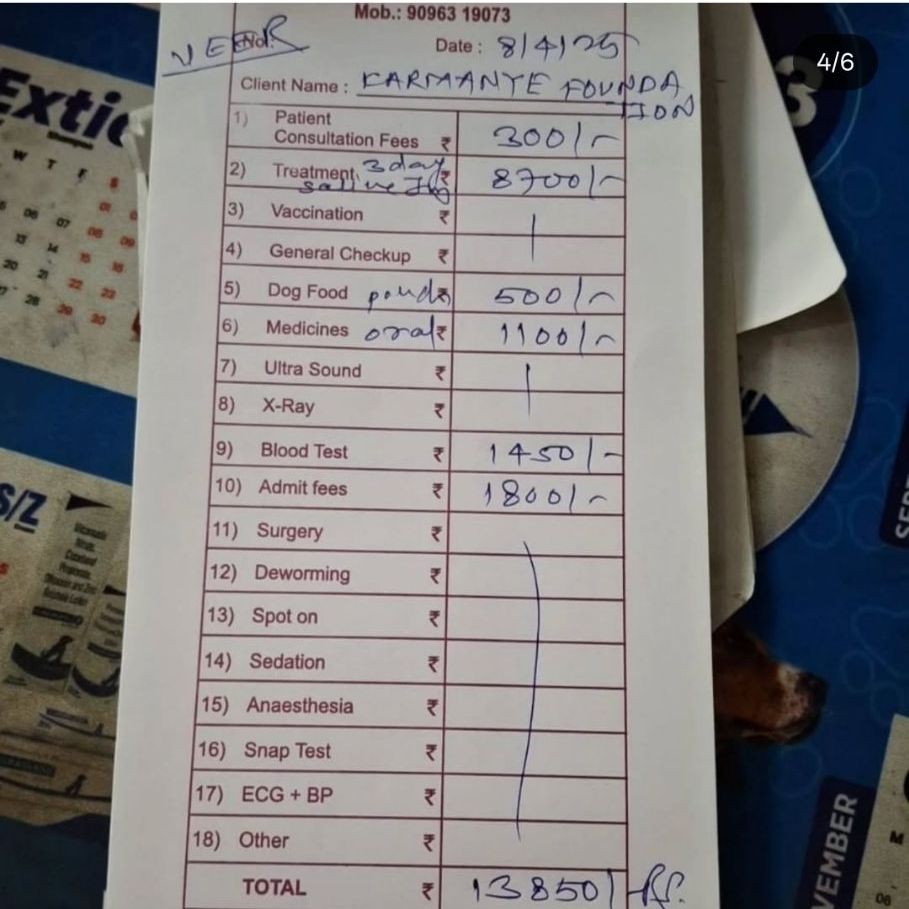 Mob.: 90963 19073
VEER
No.
Date : 8/4/25
4/6
Client Name : KARMANYE FOUNDA
TION
1) Patient
Consultation Fees ₹ 300/-
2) Treatment 3 day ₹ 8700/-
saline Inj
3) Vaccination ₹
4) General Checkup ₹
5) Dog Food ₹ 500/-
6) Medicines oral ₹ 1100/-
7) Ultra Sound ₹
8) X-Ray ₹
9) Blood Test ₹ 1450/-
10) Admit fees ₹ 1800/-
11) Surgery ₹
12) Deworming ₹
13) Spot on ₹
14) Sedation ₹
15) Anaesthesia ₹
16) Snap Test ₹
17) ECG + BP ₹
18) Other ₹
TOTAL ₹ 13850/-
Extic
W T F S
06 07 08 09
13 14 15 16
20 21 22 23
27 28 29 30
S/Z
3
SEP
VEMBER
M
06